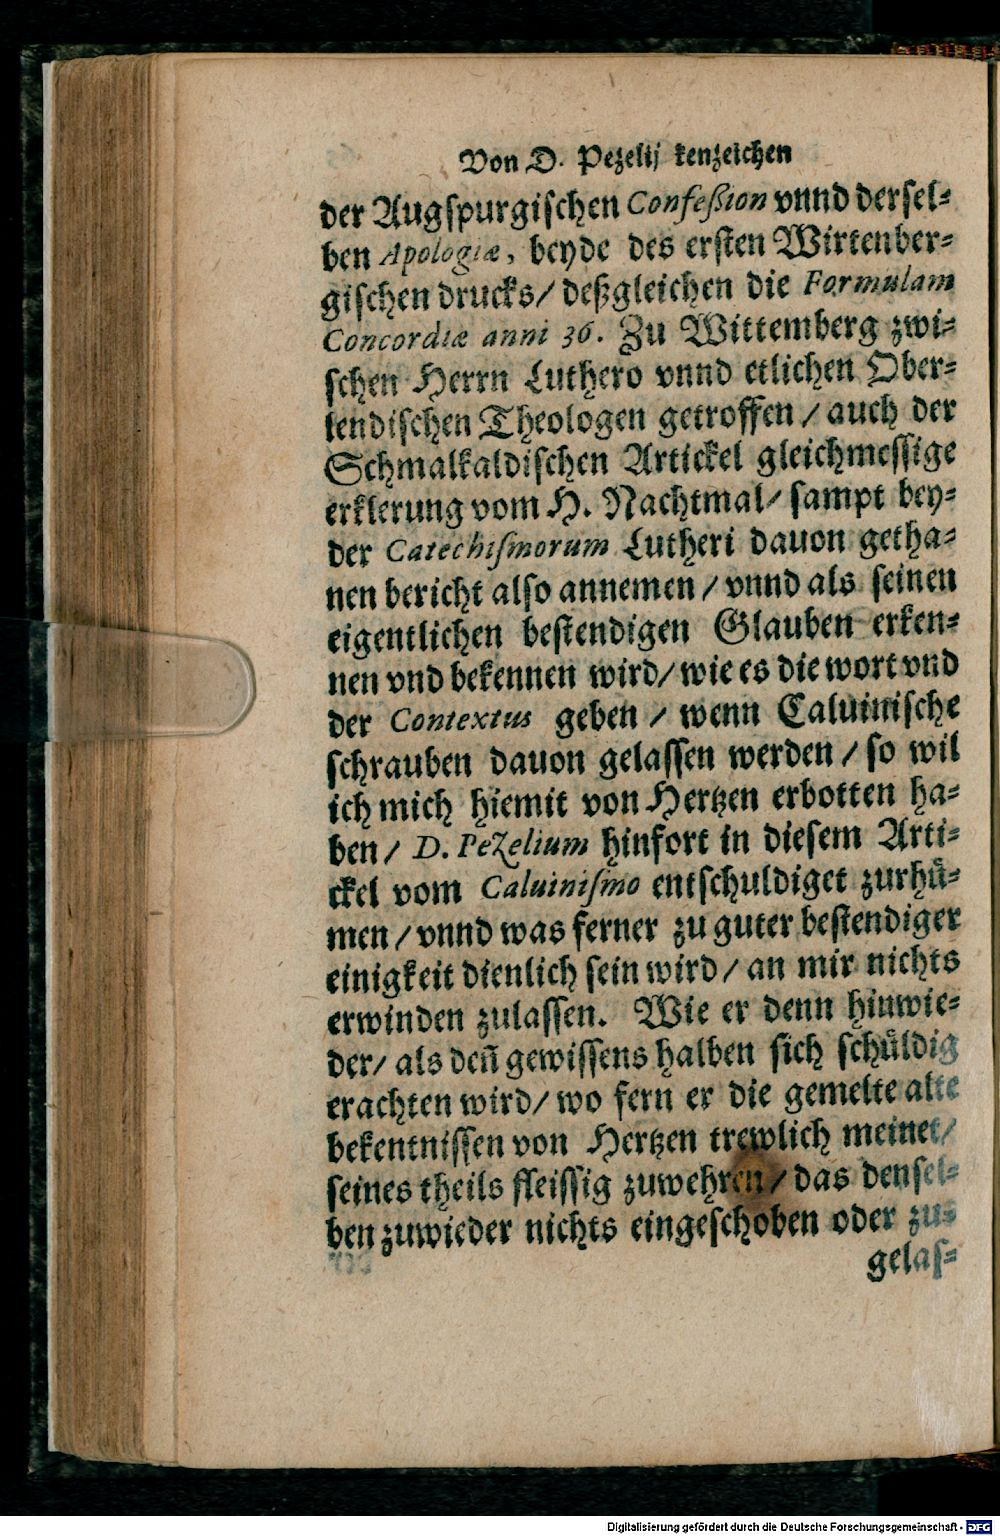 Von D. Pezelij kenzeichen
der Augspurgischen Confeßion vnnd dersel⸗
ben Apologiæ, beyde des ersten Wirtenber⸗
gischen drucks/ deßgleichen die Formulam
Concordiæ anni 36. Zu Wittemberg zwi⸗
schen Herrn Luthero vnnd etlichen Ober⸗
lendischen Theologen getroffen / auch der
Schmalkaldischen Artickel gleichmessige
erklerung vom H. Nachtmal/ sampt bey⸗
der Catechismorum Lutheri dauon getha⸗
nen bericht also annemen / vnnd als seinen
eigentlichen bestendigen Glauben erken⸗
nen vnd bekennen wird/ wie es die wort vnd
der Contextus geben / wenn Caluinische
schrauben dauon gelassen werden / so wil
ich mich hiemit von Hertzen erbotten ha⸗
ben/ D. Pezelium hinfort in diesem Arti⸗
ckel vom Caluinismo entschuldiget zurhuͤ⸗
men / vnnd was ferner zu guter bestendiger
einigkeit dienlich sein wird/ an mir nichts
erwinden zulassen. Wie er denn hinwie⸗
der/ als deñ gewissens halben sich schuͤldig
erachten wird/ wo fern er die gemelte alte
bekentnissen von Hertzen trewlich meinet/
seines theils fleissig zuwehren/ das densel⸗
ben zuwieder nichts eingeschoben oder zu⸗
gelas⸗
Digitalisierung gefördert durch die Deutsche Forschungsgemeinschaft - DFG